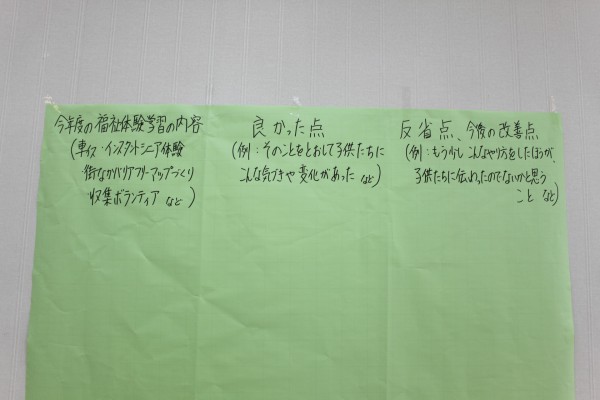 今年度の福祉体験学習の内容
(車イス・インスタントシニア体験
街なかバリアフリーマップづくり
収集ボランティア など)
良かった点
(例:そのことをとおして子供たちに
こんな気づきや変化があった など)
反省点、今後の改善点
(例:もう少しこんなやり方をしたほうが、
子供たちに伝わったのでないかと思う
こと など)